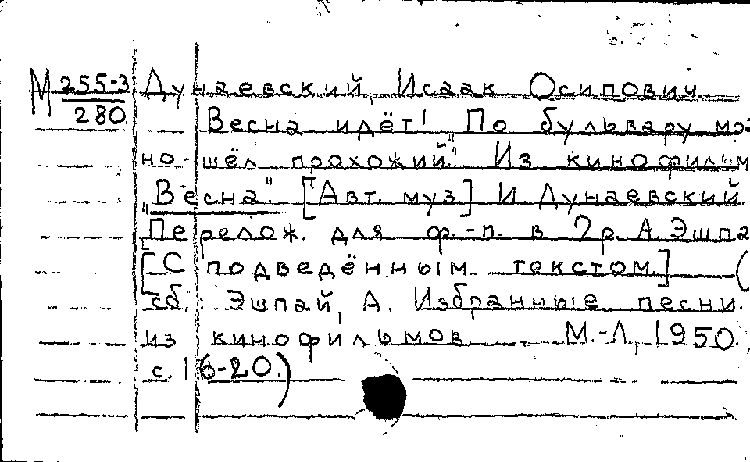 М 255-3 Дунаевский, Исаак Осипович
280 Весна идёт! "По бульвару мо
но шёл прохожий". Из кинофильм
"Весна" [Авт. муз] И Дунаевский.
"Перелож. для ф.-п. в 2 р. А. Эшпа
[С подведённым текстом] (
сб. Эшпай, А. Избранные песни
из кинофильмов. М.-Л, 1950.
с. 16-20.)